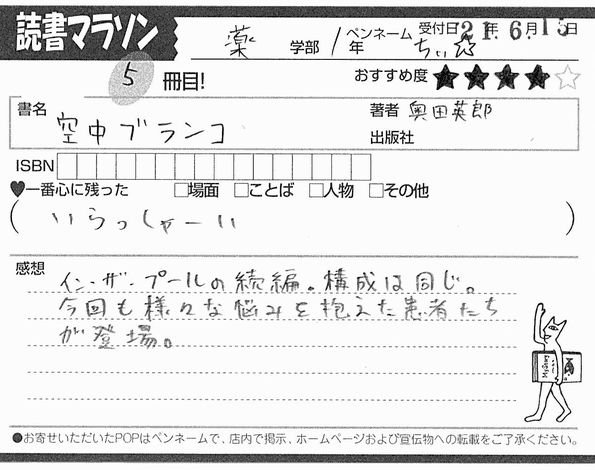 読書マラソン
薬 学部 1年 ペンネーム ちぃ☆ 受付日21年6.15日
5 冊目!
おすすめ度 ★★★★☆
書名 空中ブランコ
著者 奥田英郎
出版社
ISBN
♥一番心に残った □場面 □ことば □人物 □その他
(いらっしゃーい)
感想
イン・ザ・プールの続編。構成は同じ。
今回も様々な悩みを抱えた患者たち
が登場。
●お寄せいただいたPOPはペンネームで、店内で掲示、ホームページおよび宣伝物への転載をご了承ください。